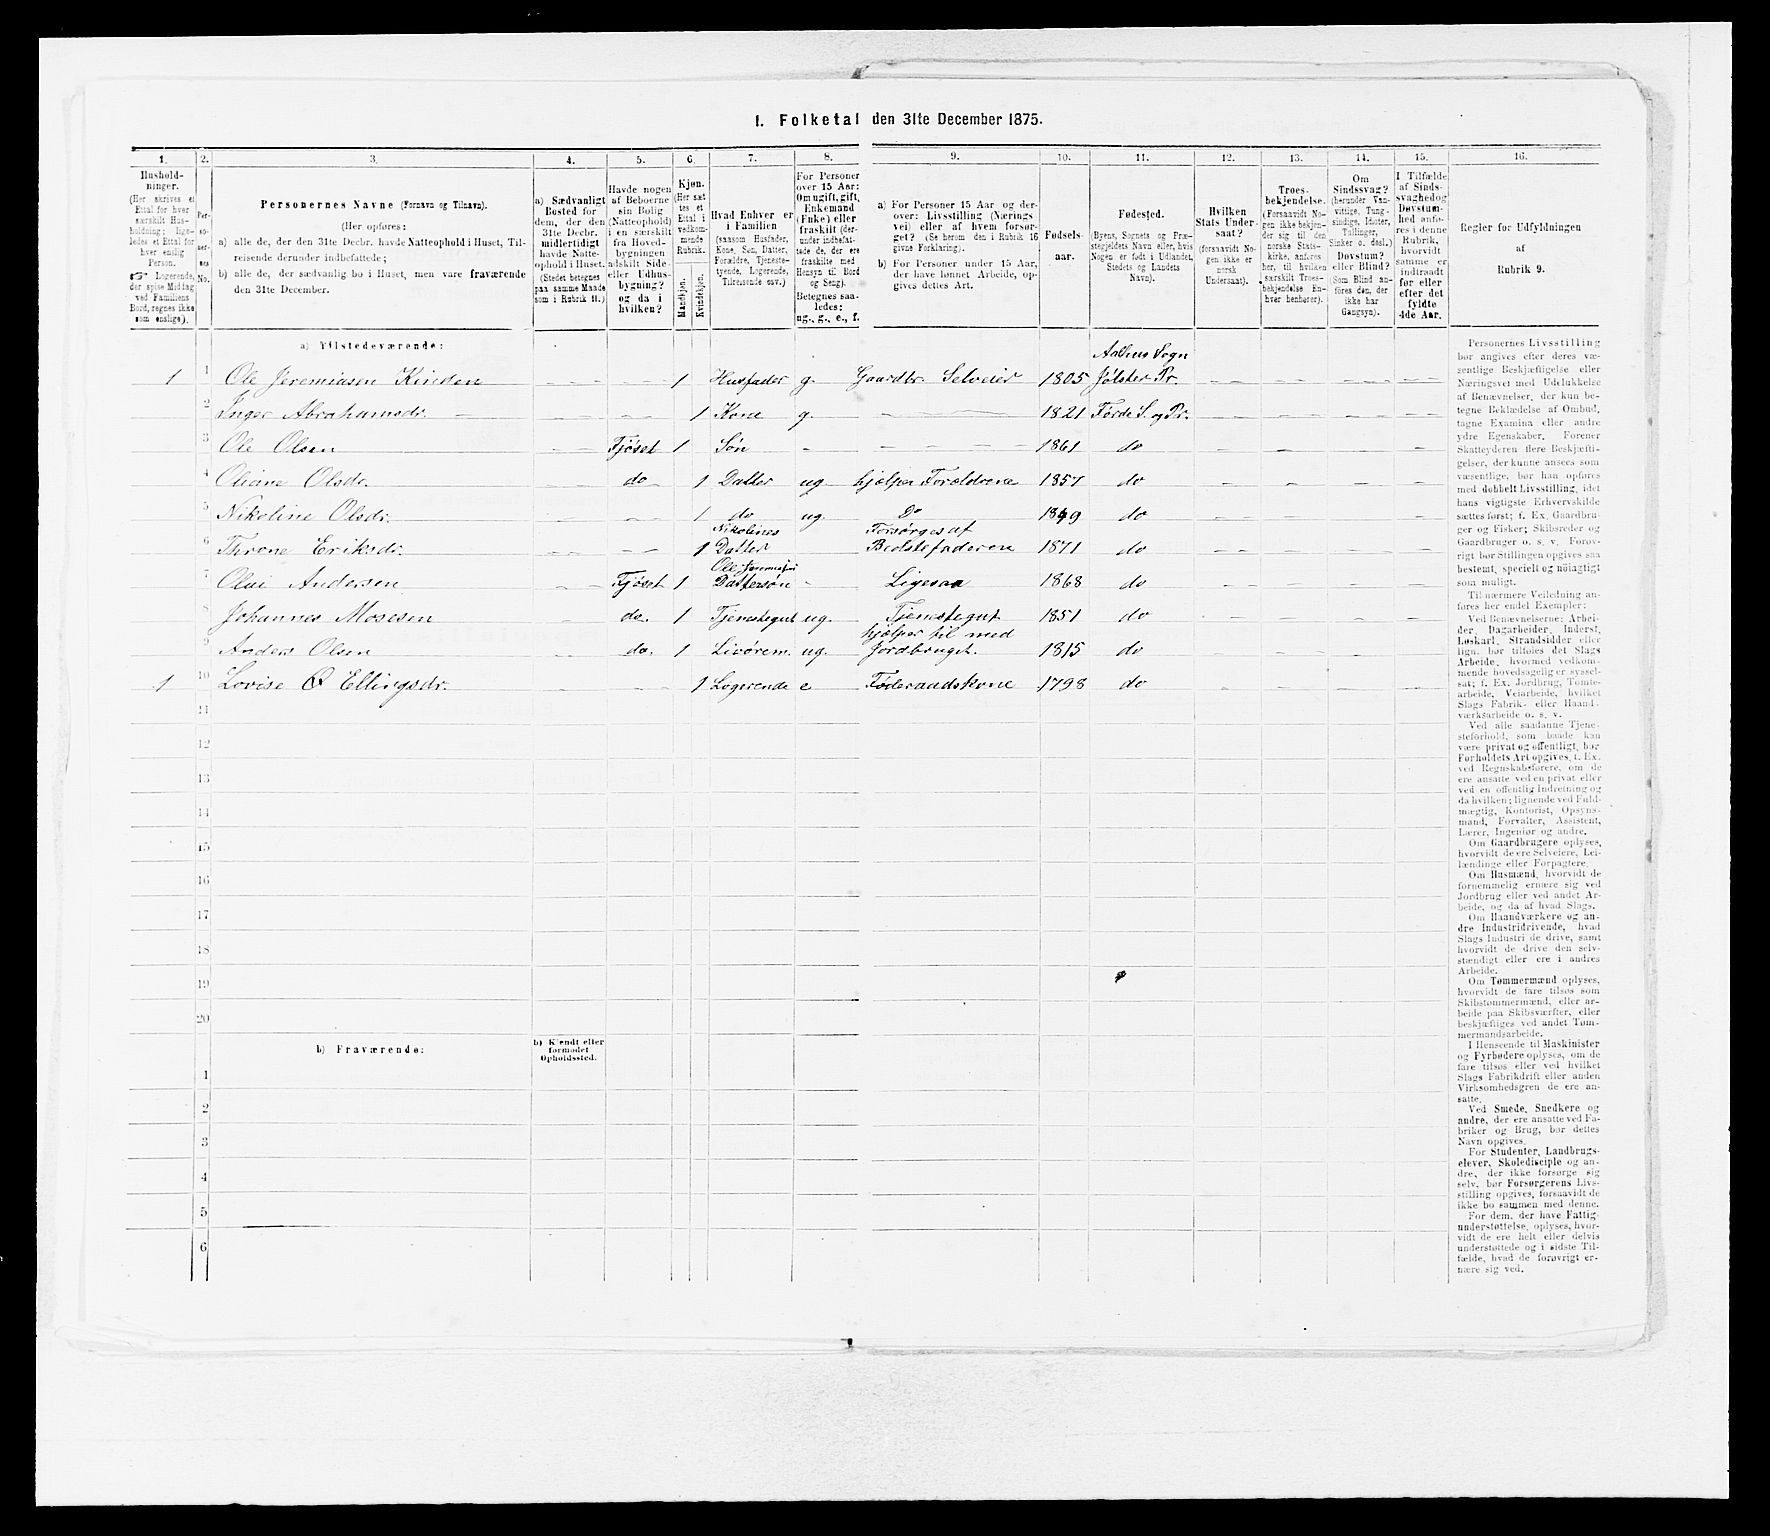 I. Folketal den 31te December 1875.
1. 2. 3. 4. 5. 6. 7. 8. 9. 10. 11. 12. 13. 14. 15. 16.
Hushold-
ninger.
(Her skrives et
Ettal for hver
særskilt Hus-
holdning; lige-
ledes et Ettal for
hver enslig
Person.
☞ Logerende,
der spise Middag
ved Familiens
Bord, regnes ikke
som enslige).
Per-
so-
ner-
nes
No.
Personernes Navne (Fornavn og Tilnavn).
(Her opføres:
a) alle de, der den 31te Decbr. havde Natteophold i Huset, Til-
reisende derunder indbefattede;
b) alle de, der sædvanlig bo i Huset, men vare fraværende
den 31te December.
a) Sædvanligt
Bosted for
dem, der den
31te Decbr.
midlertidigt
havde Natte-
ophold i Huset.
(Stedet betegnes
paa samme Maade
som i Rubrik 11.)
Havde nogen
af Beboerne
sin Bolig
(Natteophold)
i en særskilt
fra Hoved-
bygningen
adskilt Side-
eller Udhus-
bygning?
og da i
hvilken?
Kjøn.
(Her sæt-
tes et
Ettal i
vedkom-
mende
Rubrik.
Mandkjøn.
Kvindekjøn.
Hvad Enhver er
i Familien
(saasom Husfader,
Kone, Søn, Datter,
Forældre, Tjeneste-
tyende, Logerende,
Tilreisende osv.)
For Personer
over 15 Aar:
Om ugift, gift,
Enkemand
(Enke) eller
fraskilt (der-
under indbefat-
tede de, der ere
fraskilte med
Hensyn til Bord
og Seng).
Betegnes saa-
ledes:
ug., g., e., f.
a) For Personer 15 Aar og der-
over: Livsstilling (Nærings-
vei) eller af hvem forsør-
get? (Se herom den i Rubrik 16
givne Forklaring).
b) For Personer under 15 Aar,
der have lønnet Arbeide, op-
gives dettes Art.
Fødsels-
aar.
Fødested.
(Byens, Sognets og Præ-
stegjeldets Navn eller, hvis
Nogen er født i Udlandet,
Stedets og Landets
Navn).
Hvilken
Stats Under-
saat?
(forsaavidt No-
gen ikke er
norsk
Undersaat).
Troes-
bekjendelse.
(Forsaavidt No-
gen ikke bekjen-
der sig til den
norske Stats-
kirke, anføres
her, til hvilken
særskilt Troes-
bekjendelse En-
hver henhører).
Om
Sindssvag?
(herunder Van-
vittige, Tung-
sindige, Idioter,
Tullinger,
Sinker o. desl.)
Døvstum?
eller Blind?
(Som Blind an-
føres den, der
ikke har
Gangsyn).
I Tilfælde
af Sinds-
svaghed og
Døvstum-
hed anfø-
res i denne
Rubrik,
hvorvidt
samme er
indtraadt
før eller
efter det
fyldte
4de Aar.
Regler for Udfyldningen
af
Rubrik 9.
a) Tilstedeværende:
Aalhus Sogn
1 1 Ole Jeremiasen Kinden – – 1 Husfader g. Gaardbr. Selveier 1805 Jølster Pr. – – – –
2 Inger Abrahamsdr. – – 1 Kone g. – 1821 Førde S. og Pr. – – – –
3 Ole Olsen – Fjøset 1 Søn – – 1861 do – – – –
4 Oliane Olsdr. – do 1 Datter ug. hjælper Forældrene 1857 do – – – –
5 Nikoline Olsdr. – – 1 do ug. Do 1849 do – – – –
Nikolines Forsørges af
6 Throne Eriksdr. – – 1 Datter Bedstefaderen 1871 do – – – –
Ole Jeremiasens
7 Olai Andersen – Fjøset 1 Dattersøn – Ligesaa 1868 do – – – –
8 Johannes Mosesen do. 1 Tjenestegut ug. Tjenestegut 1851 do – – – –
hjælper til med
9 Anders Olsen – do. 1 Livørem. ug. Jordbruget. 1815 do – – – –
1 10 Lovise O Ellingsdr. – – 1 Logerende e Føderaadskone 1798 do – – – –
11
12
13
14
15
16
17
18
19
20
b) Fraværende:
b) Kjendt eller
formodet
Opholdssted.
1
2
3
4
5
6
Personernes Livsstilling
bør angives efter deres væ-
sentlige Beskjæftigelse eller
Næringsvei med Udelukkelse
af Benævnelser, der kun be-
tegne Beklædelse af Ombud,
tagne Examina eller andre
ydre Egenskaber. Forener
Skatteyderen flere Beskjæfti-
gelser, der kunne ansees som
væsentlige, bør han opføres
med dobbelt Livsstilling, idet
hans vigtigste Erhvervskilde
sættes først; f. Ex. Gaardbru-
ger og Fisker; Skibsreder og
Gaardbruger o. s. v. Forøv-
rigt bør Stillingen opgives saa
bestemt, specielt og nøiagtigt
som muligt.
Til nærmere Veiledning an-
føres her endel Exempler:
Ved Benævnelserne: Arbei-
der, Dagarbeider, Inderst,
Løskarl, Strandsidder eller
lign. bør tilføies det Slags
Arbeide, hvormed vedkom-
mende hovedsagelig er syssel-
sat; f. Ex. Jordbrug, Tømte-
arbeide, Veiarbeide, hvilket
Slags Fabrik- eller Haand-
værksarbeide o. s. v.
Ved alle saadanne Tjene-
steforhold, som baade kan
være privat og offentligt, bør
Forholdets Art opgives, f. Ex.
ved Regnskabsførere, om de
ere ansatte ved en privat eller
ved en offentlig Indretning og
da hvilken; lignende ved Fuld-
mægtig, Kontorist, Opsyns-
mand, Forvalter, Assistent,
Lærer, Ingeniør og andre.
Om Gaardbrugere oplyses,
hvorvidt de ere Selveiere, Lei-
lændinge eller Forpagtere.
Om Husmænd, hvorvidt de
fornemmelig ernære sig ved
Jordbrug eller ved andet Ar-
beide, og da af hvad Slags.
Om Haandværkere og an-
dre Industridrivende, hvad
Slags Industri de drive, samt
hvorvidt de drive den selv-
stændigt eller ere i andres
Arbeide.
Om Tømmermænd oplyses,
hvorvidt de fare tilsøs som
Skibstømmermænd, eller ar-
beide paa Skibsværfter, eller
beskjæftiges ved andet Tøm-
mermandsarbeide.
I Henseende til Maskinister
og Fyrbødere oplyses, om de
fare tilsøs eller ved hvilket
Slags Fabrikdrift eller anden
Virksomhedsgren de ere an-
satte.
Ved Smede, Snedkere og
andre, der ere ansatte ved Fa-
briker og Brug, bør dettes
Navn opgives.
For Studenter, Landbrugs-
elever, Skoledisciple og an-
dre, der ikke forsørge sig
selv, bør Forsørgerens Livs-
stilling opgives, forsaavidt de
ikke bo sammen med denne.
For dem, der have Fattig-
understøttelse, oplyses, hvor-
vidt de ere helt eller delvis
understøttede og i sidste Til-
fælde, hvad de forøvrigt er-
nære sig ved.